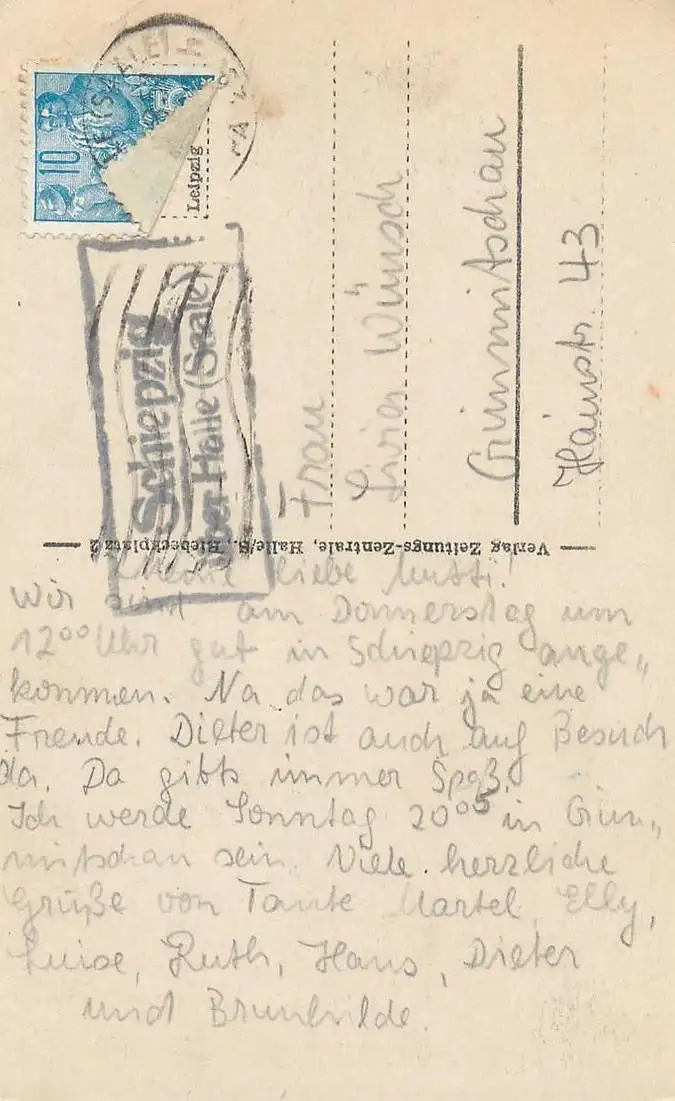 10
(SAALE)
Leipzig
Schiepzig
über Halle (Saale)
Frau
Wünsch
Crimmitschau
Hainstr. 43
Verlag Zeitungs-Zentrale, Halle/S., Riebeckplatz 2
liebe Mutti!
Wir sind am Donnerstag um
12⁰⁰ Uhr gut in Schiepzig ange„
kommen. Na das war ja eine
Freude. Dieter ist auch auf Besuch
da. Da gibts immer Spaß.
Ich werde Sonntag 20⁰⁵ in Crim„
mitschau sein. Viele herzliche
Grüße von Tante Martel, Elly,
Luise, Ruth, Hans, Dieter
und Brunhilde.